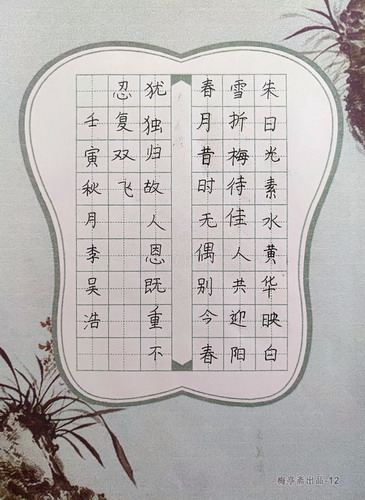 朱日光素水黄华映白
雪折梅待佳人共迎阳
春月昔时无偶别今春
犹独归故人恩既重不
忍复双飞
壬寅秋月李吴浩
梅亭斋出品-12